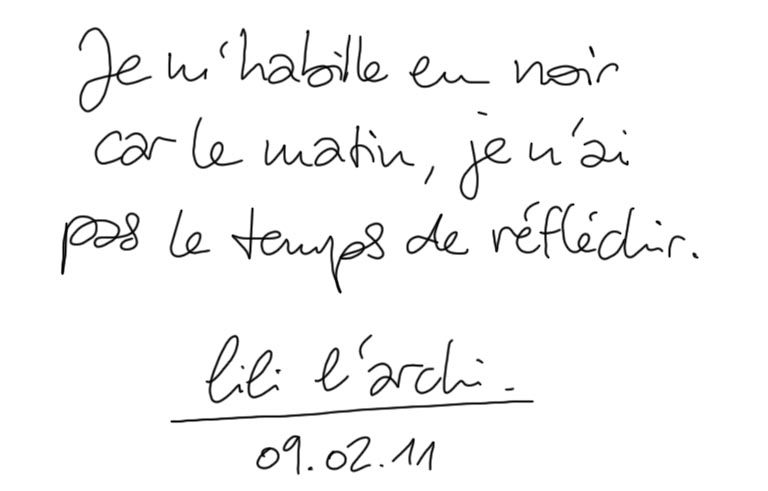 Je m'habille en noir
car le matin, je n'ai
pas le temps de réfléchir.
lili l'archi.
09.02.11